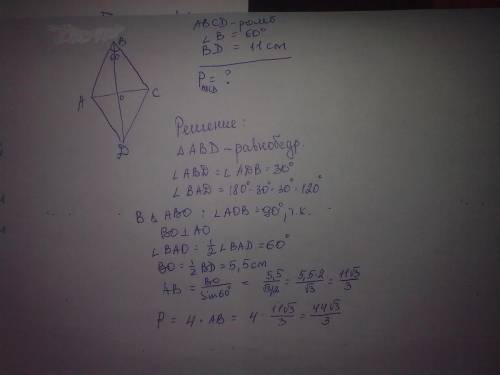 ABCD - ромб
∠B = 60°
BD = 11 cm
P = ?
B
60
A
O
C
D
Решение:
△ABD - равнобедр.
∠ABD = ∠ADB = 30°
∠BAD = 180°-30°-30°=120°
В △ABO : ∠AOB = 90°, т.к.
BO ⊥ AO
∠BAO = 1/2 ∠BAD = 60°
BO = 1/2 BD = 5,5 cm
AB = BO/Sin60° = 5,5/(√3/2) = 5,5·2/√3 = 11√3/3
P = 4 · AB = 4 · 11√3/3 = 44√3/3